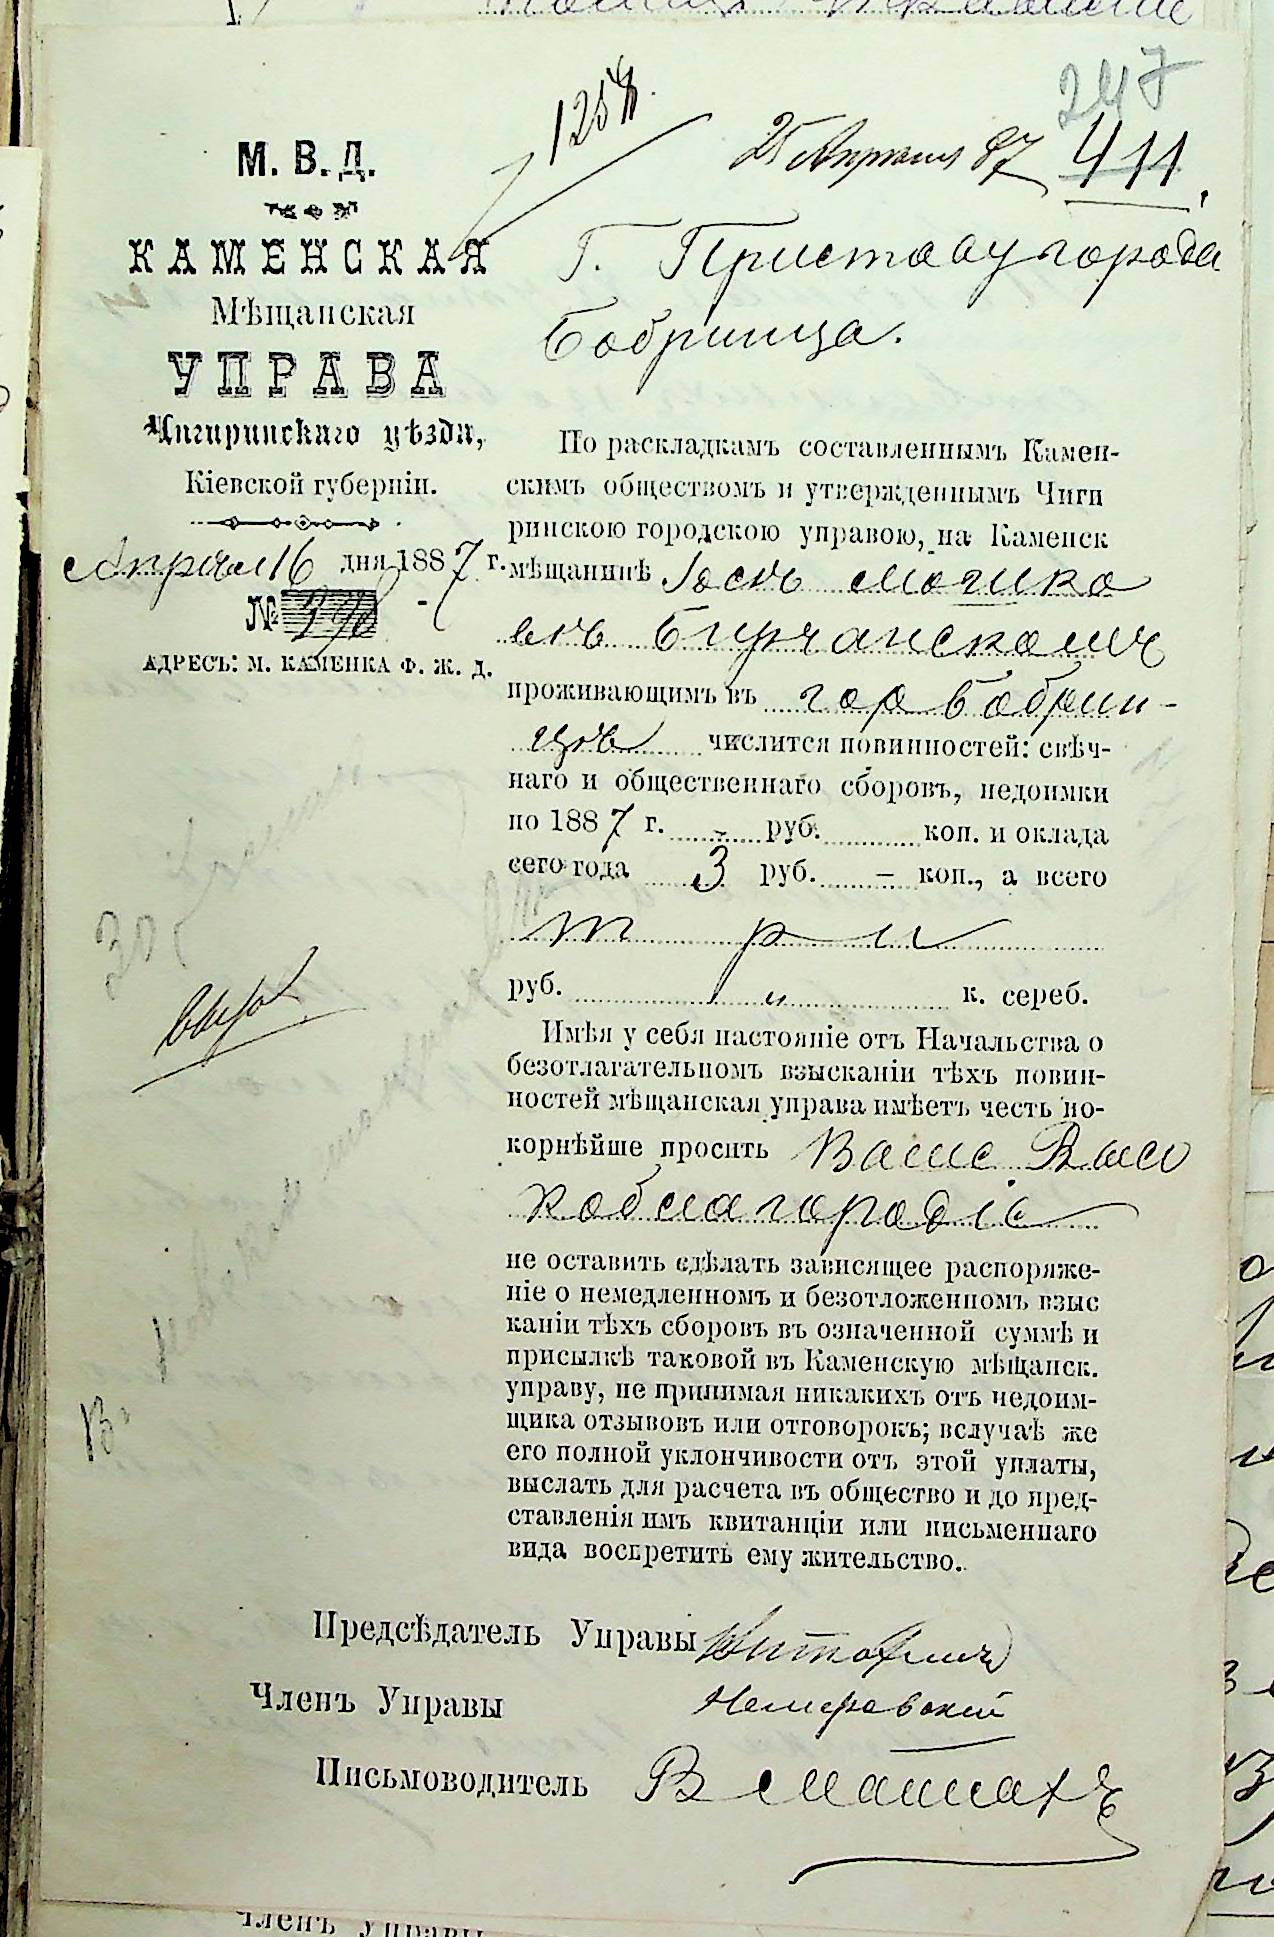 247
1258
25 Апреля 87
411.
М. В. Д.
КАМЕНСКАЯ
Мѣщанская
УПРАВА
Чигиринскаго уѣзда,
Кіевской губерніи.
Апреля 16 дня 1887 г.
№ 390
АДРЕСЪ: М. КАМЕНКА Ф. Ж. Д.
Г. Приставу города
Бобринца.
По раскладкамъ составленнымъ Камен-
скимъ обществомъ и утвержденнымъ Чиги
ринскою городскою управою, на Каменск
мѣщанинѣ Іось
проживающимъ въ гор Бобрин-
цѣ числится повинностей: свѣч-
наго и общественнаго сборовъ, недоимки
по 1887 г. - руб. коп. и оклада
сего года 3 руб. - коп., а всего
три
руб. к. сереб.
Имѣя у себя настояніе отъ Начальства о
безотлагательномъ взысканіи тѣхъ повин-
ностей мѣщанская управа имѣетъ честь по-
корнѣйше просить Ваше Высо
коблагородіе
не оставить сдѣлать зависящее распоряже-
ніе о немедленномъ и безотложенномъ взыс
каніи тѣхъ сборовъ въ означенной суммѣ и
присылкѣ таковой въ Каменскую мѣщанск.
управу, не принимая никакихъ отъ недоим-
щика отзывовъ или отговорокъ; вслучаѣ же
его полной уклончивости отъ этой уплаты,
выслать для расчета въ общество и до пред-
ставленія имъ квитанціи или письменнаго
вида воспретить ему жительство.
Предсѣдатель Управы
Членъ Управы
Письмоводитель В
Членъ Управы